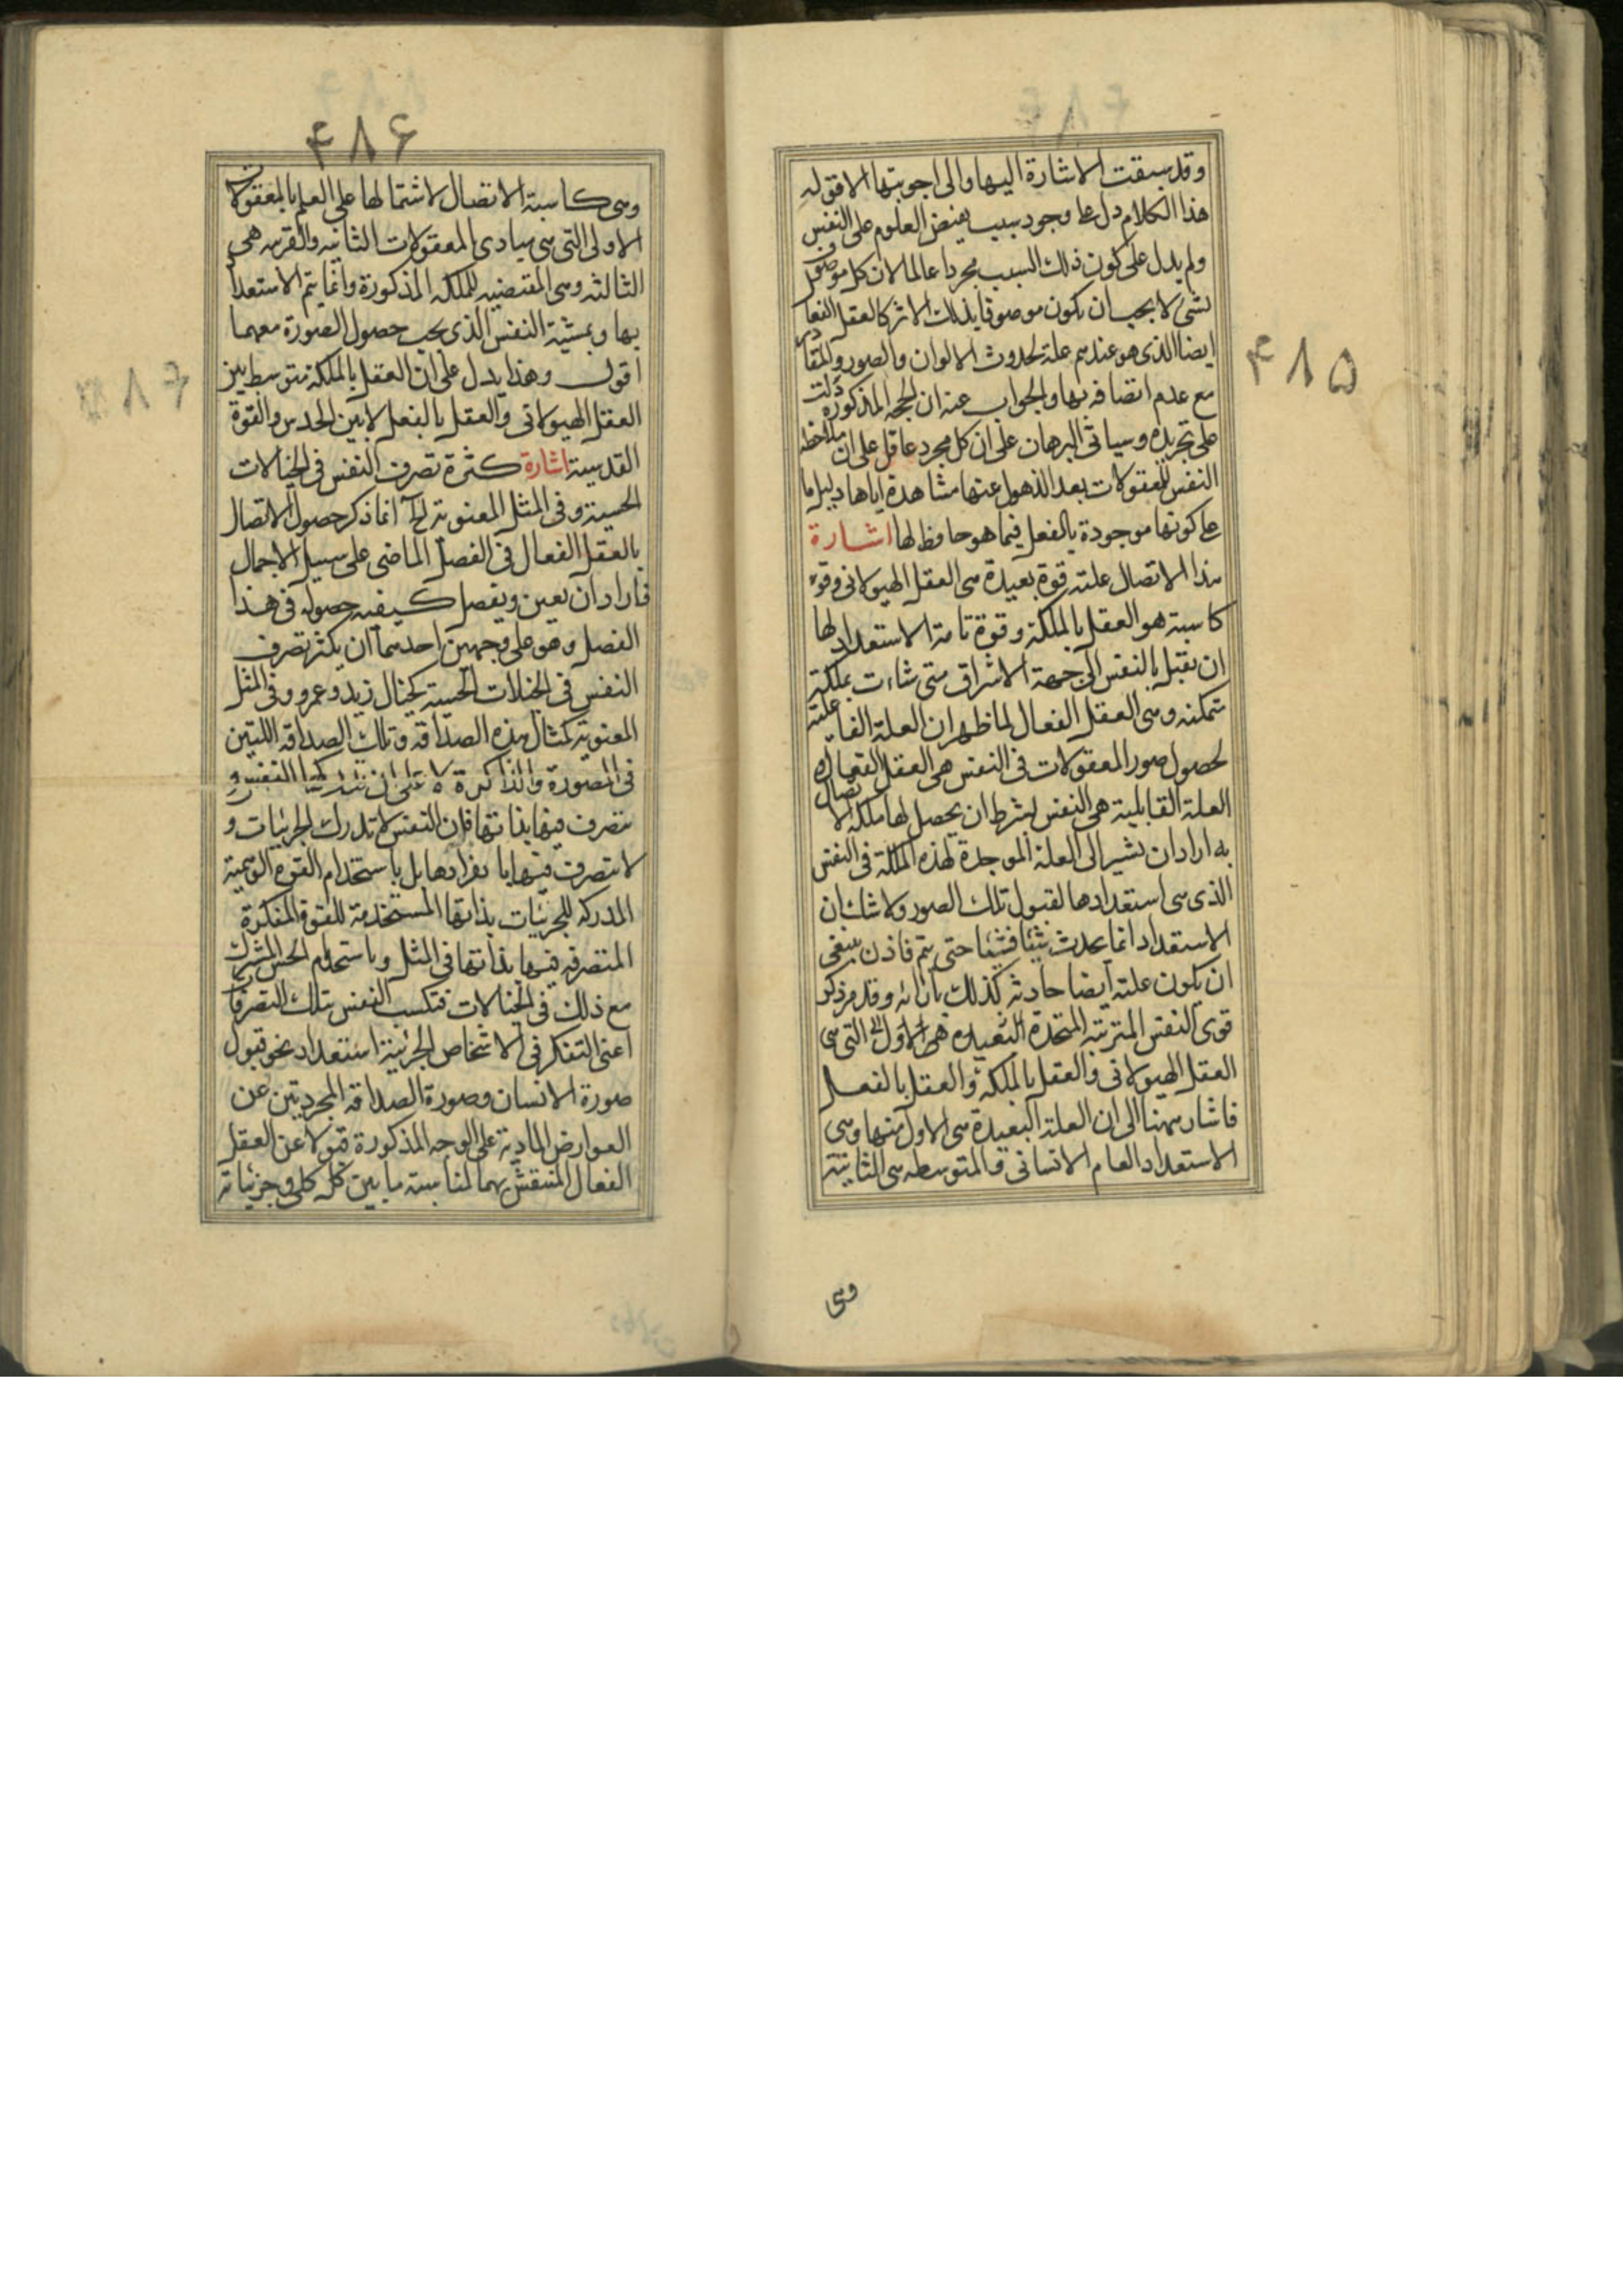 ۴۸۵
وقد سبقت الاشارة اليها والى اجوبتها الا قوله
هذا الكلام دل على وجود سبب يفيض العلوم على النفس
ولم يدل على كون ذلك السبب مجردا عالما لان كل موصوف
بشئ لا يجب ان يكون موصوفا بذلك الاثر كالعقل الفعال
ايضا الذى هو عندهم علة لحدوث الالوان والصور والمقادير
مع عدم اتصافه بها والجواب عنه ان الحجة المذكورة دلت
على تجريده وسياتى البرهان على ان كل مجرد عاقل على ان ملاحظة
النفس للمعقولات بعد الذهول عنها مشاهدة اياها دليل ما
على كونها موجودة بالفعل فيما هو حافظ لها اشارة
هذا الاتصال علته قوة بعيدة هى العقل الهيولانى وقوة
كاسبة هو العقل بالملكة وقوة تامة الاستعداد لها
ان تقبل بالنفس الى جهة الاشراق متى شاءت بملكة
متمكنه وهى العقل الفعال لما ظهر ان العلة الفاعلية
لحصول صور المعقولات فى النفس هى العقل الفعال و
العلة القابلية هى النفس بشرط ان يحصل لها ملكه الاتصال
به اراد ان يشير الى العلة الموجدة لهذه الملكة فى النفس
الذى هى استعدادها لقبول تلك الصور ولا شك ان
الاستعداد انما يحدث شيئا فشيئا حتى يتم فاذن ينبغى
ان يكون علته ايضا حادثه كذلك بازائه وقد مر ذكر
قوى النفس المترتبه المتجددة البعيدة هى الاولى التى هى
العقل الهيولانى والعقل بالملكه والعقل بالفعل
فاشار ههنا الى ان العلة البعيدة هى الاولى منها وهى
الاستعداد العام الانسانى والمتوسطه هى الثانية
وهى
۴۸۶
وهى كاسبة الاتصال لاشتمالها على العلم بالمعقولات
الاولى التى هى مبادى المعقولات الثانيه والقريبه هى
الثالثه وهى المقتضيه للملكه المذكورة وانما يتم الاستعداد
بها وبمشية النفس الذى يجب حصول الصورة معهما
اقول وهذا يدل على ان العقل بالملكة متوسط بين
العقل الهيولانى والعقل بالفعل لا بين الحدس والقوة
القدسية اشارة كثرة تصرف النفس فى الخيالات
الحسية وفى المثل المعنوية الخ انما ذكر حصول الاتصال
بالعقل الفعال فى الفصل الماضى على سبيل الاجمال
فاراد ان يعين ويفصل كيفيه حصوله فى هذا
الفصل وهو على وجهين احدهما ان يكثر تصرف
النفس فى الخيالات الحسية كخيال زيد وعمرو وفى المثل
المعنوية كمثال هذه الصداقه وتلك الصداقه اللتين
فى المصورة والذاكرة لا على ان تدركها النفس و
تتصرف فيها بذاتها فان النفس لا تدرك الجزئيات و
لا تتصرف فيها بانفرادها بل باستخدام القوه الوهمية
المدركه للجزئيات بذاتها المستخدمة للقوة المفكرة
المتصرفه فيها بذاتها فى المثل وباستخدام الحس المشترك
مع ذلك فى الخيالات فتكسب النفس بتلك التصرفات
اعنى التفكر فى الاشخاص الجزئية استعداد نحو قبول
صورة الانسان وصورة الصداقه المجردتين عن
العوارض المادية على الوجه المذكورة قبولا عن العقل
الفعال المنتقش بهما لمناسبة ما بين كل كلى وجزئياته